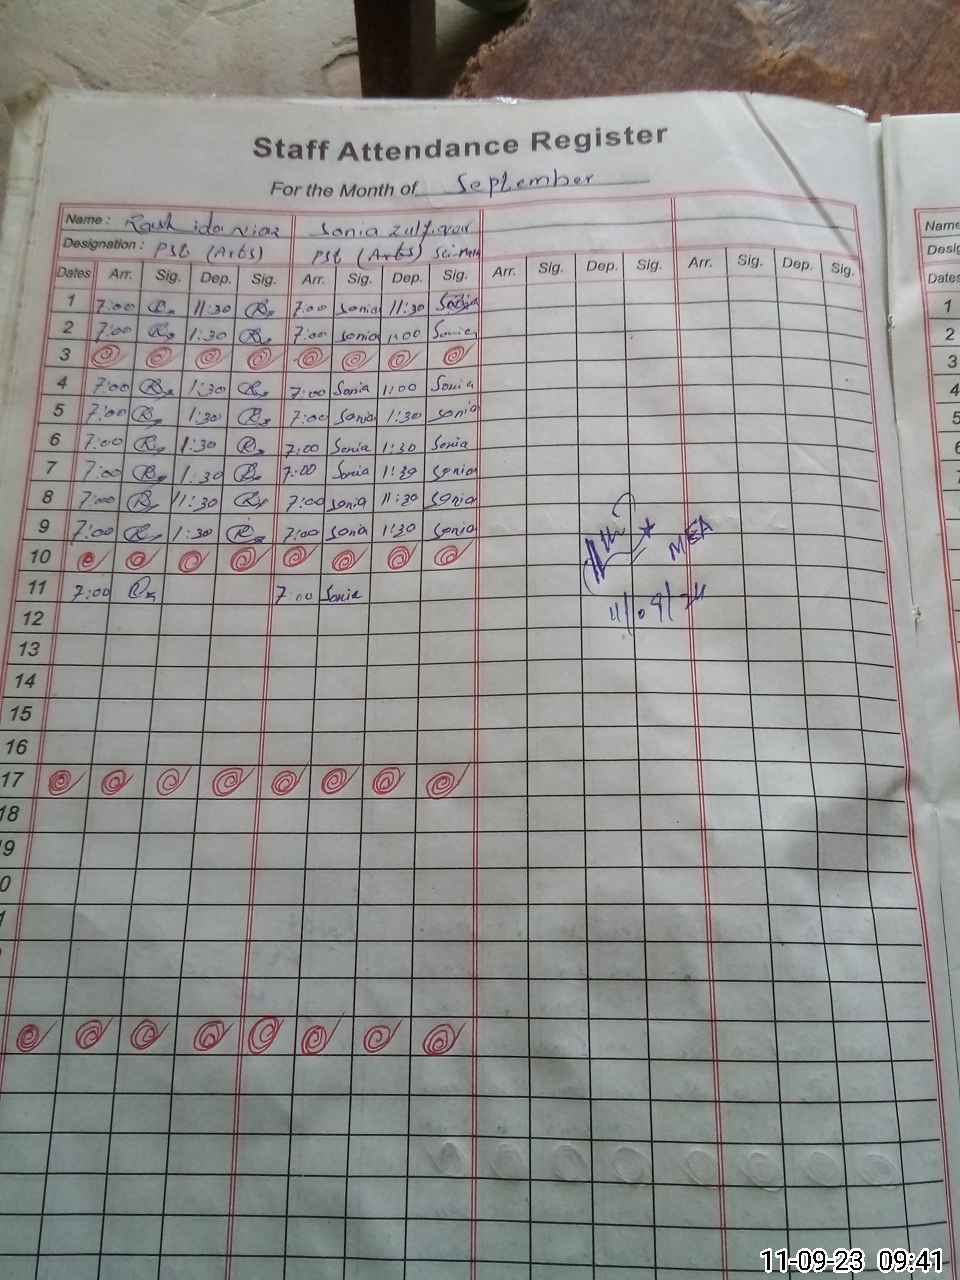 Staff Attendance Register
For the Month of September
Name : Rashida Niaz Sonia Zulfiqar Name
Designation : PST (Arts) PST (Arts) Science Desig
Dates Arr. Sig. Dep. Sig. Arr. Sig. Dep. Sig. Arr. Sig. Dep. Sig. Arr. Sig. Dep. Sig. Dates
1 7:00 11:30 7:00 Sonia 11:30 Sonia 1
2 7:00 1:30 7:00 Sonia 1:00 Sonia 2
3 3
4 7:00 1:30 7:00 Sonia 1:00 Sonia 4
5 7:00 1:30 7:00 Sonia 1:30 Sonia 5
6 7:00 1:30 7:00 Sonia 1:30 Sonia 6
7 7:00 1:30 7:00 Sonia 1:30 Sonia
8 7:00 11:30 7:00 Sonia 11:30 Sonia
9 7:00 1:30 7:00 Sonia 1:30 Sonia
MEA
10
11 7:00 7:00 Sonia
12
13
14
15
16
17
18
9
0
11-09-23 09:41